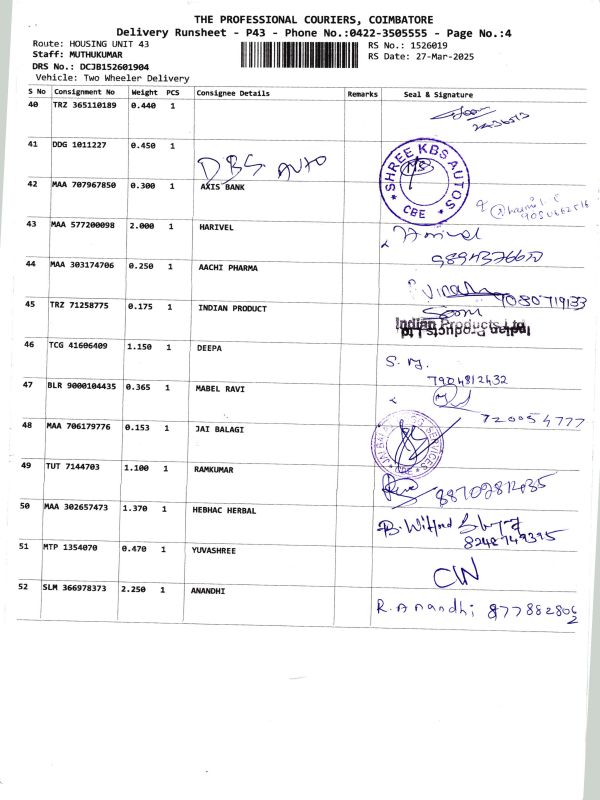 THE PROFESSIONAL COURIERS, COIMBATORE
Delivery Runsheet - P43 - Phone No.:0422-3505555 - Page No.:4
Route: HOUSING UNIT 43
RS No.: 1526019
Staff: MUTHUKUMAR
RS Date: 27-Mar-2025
DRS No.: DCJB152601904
Vehicle: Two Wheeler Delivery
S No Consignment No Weight PCS Consignee Details Remarks Seal & Signature
40 TRZ 365110189 0.440 1
41 DDG 1011227 0.450 1
DBS AUTO
SHREE KBS AUTOS
CBE
42 MAA 707967850 0.300 1 AXIS BANK
43 MAA 577200098 2.000 1 HARIVEL
44 MAA 303174706 0.250 1 AACHI PHARMA
9080719133
45 TRZ 71258775 0.175 1 INDIAN PRODUCT
Indian Products Ltd
46 TCG 41606409 1.150 1 DEEPA
7904812432
47 BLR 9000104435 0.365 1 MABEL RAVI
720054777
48 MAA 706179776 0.153 1 JAI BALAGI
CBE
49 TUT 7144703 1.100 1 RAMKUMAR
50 MAA 302657473 1.370 1 HEBHAC HERBAL
8248749395
51 MTP 1354070 0.470 1 YUVASHREE
52 SLM 366978373 2.250 1 ANANDHI
R. Anandhi 8778828062